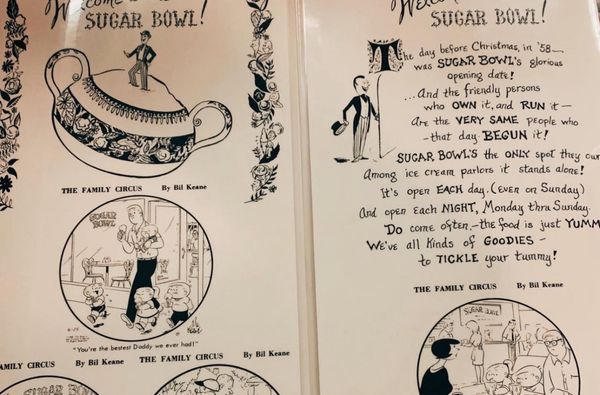 Welcome
SUGAR BOWL!
THE FAMILY CIRCUS By Bil Keane
SUGAR BOWL
"You're the bestest Daddy we ever had!"
FAMILY CIRCUS By Bil Keane
THE FAMILY CIRCUS By Bil Keane
SUGAR BOWL
Welcome
SUGAR BOWL!
The day before Christmas, in '58—
was SUGAR BOWL'S glorious
opening date!
...And the friendly persons
who OWN it, and RUN it—
Are the VERY SAME people who
—that day BEGUN it!
SUGAR BOWL'S the ONLY spot they
Among ice cream parlors it stands alone!
It's open EACH day. (EVEN on Sunday)
And open each NIGHT, Monday thru Sunday.
Do come often,—the food is just YUMM
We've all kinds of GOODIES —
to TICKLE your tummy!
THE FAMILY CIRCUS By Bil Keane
SUGAR BOWL